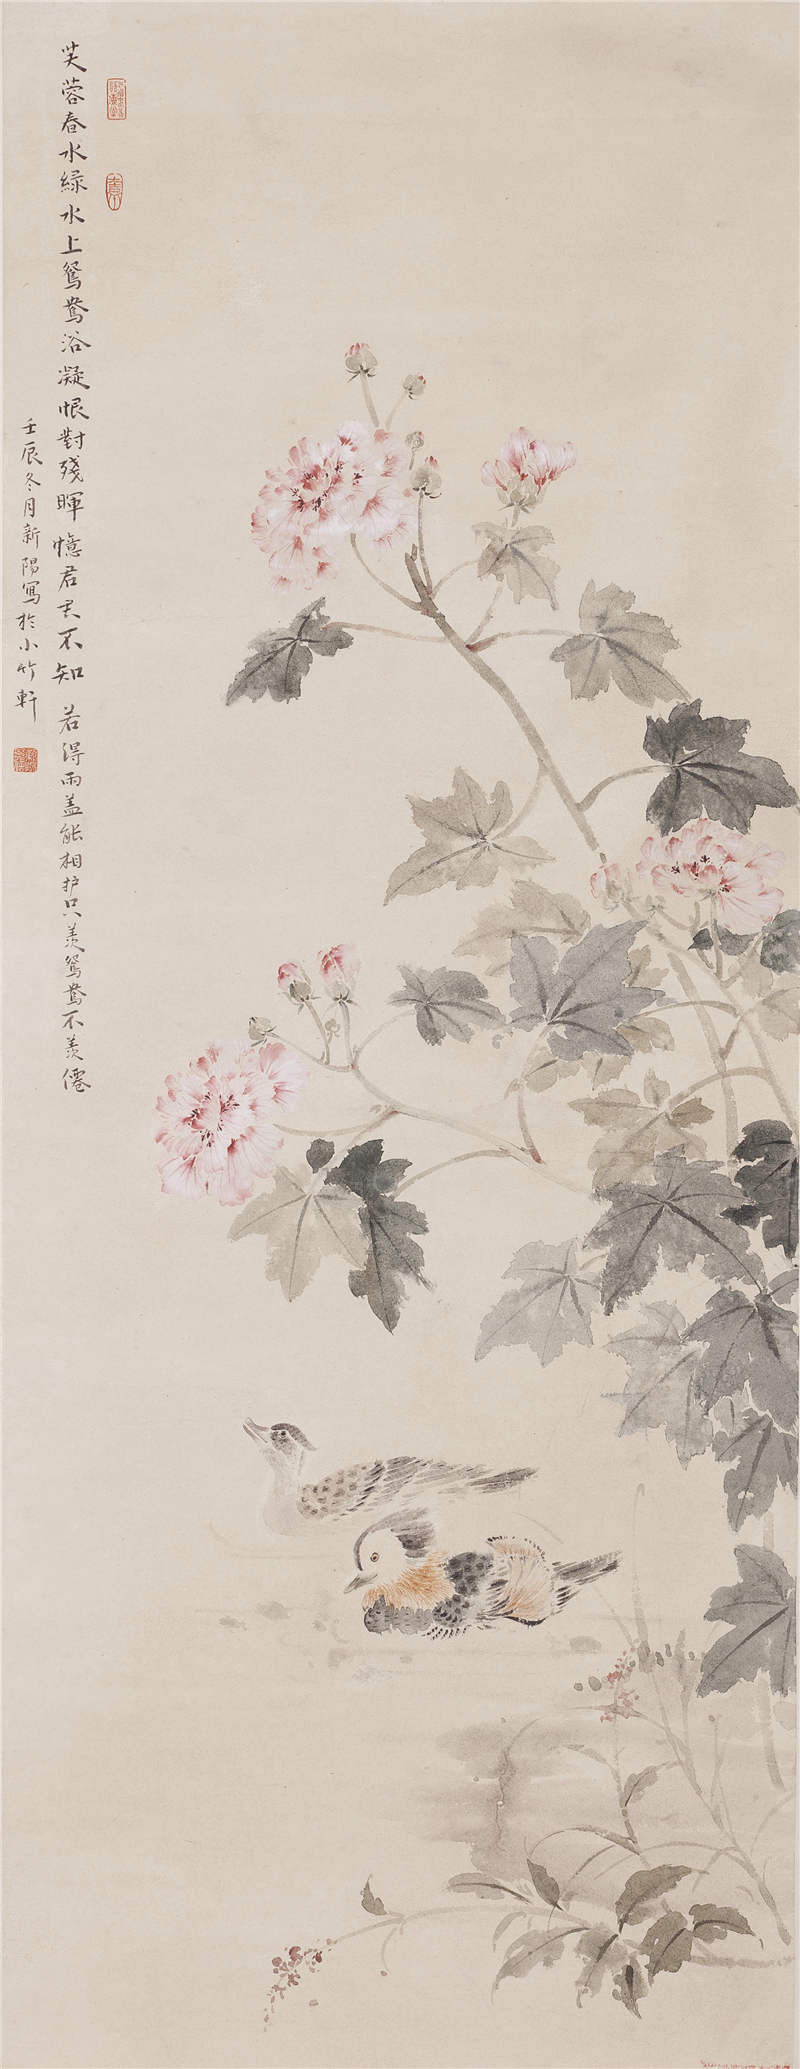 芙蓉春水綠水上鴛鴦浴凝恨對殘暉憶君君不知 若得雨盖能相护只羡鴛鴦不羡僊
壬辰冬月新陽寫於小竹軒